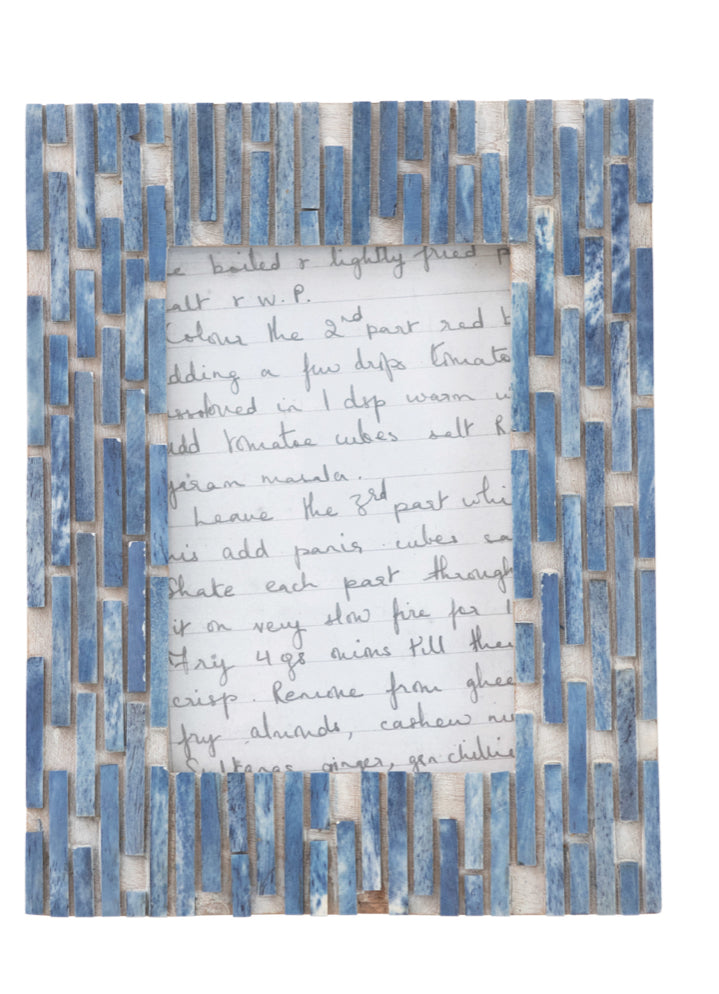 e boiled & lightly fried p
alt & W.P.
Colour the 2nd part red b
dding a few drps tomato
issolved in 1 dsp warm w
add tomatoe cubes salt R
garam masala.
Leave the 3rd part whi
his add panir cubes sa
Shake each part through
it on very slow fire for 1
Fry 4 gs onions till they
crisp. Remove from ghee
fry almonds, cashew nu
Sultanas, ginger, grn chillie